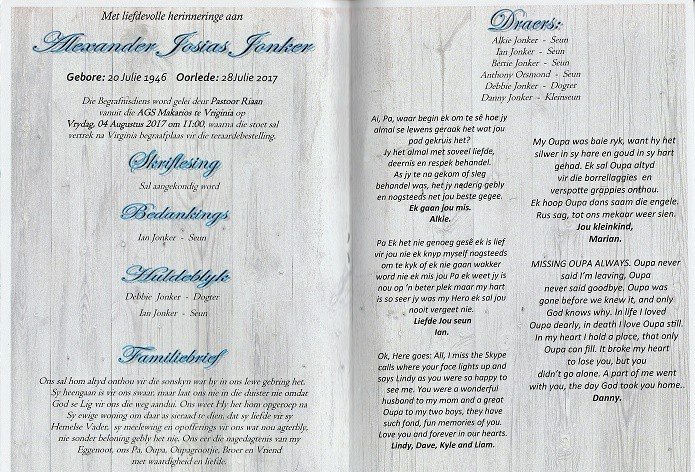 Met liefdevolle herinneringe aan
Alexander Josias Jonker
Gebore: 20 Julie 1946 Oorlede: 28Julie 2017
Die Begrafnisdiens word gelei deur Pastoor Riaan
vanuit die AGS Makarios te Virginia op
Vrydag, 04 Augustus 2017 om 11:00, waarna die stoet sal
vertrek na Virginia begraafplaas vir die teraardebestelling.
Skriflesing
Sal aangekondig word
Bedankings
Ian Jonker - Seun
Huldeblyk
Debbie Jonker - Dogter
Ian Jonker - Seun
Familiebrief
Ons sal hom altyd onthou vir die sonskyn wat hy in ons lewe gebring het.
Sy heengaan is vir ons swaar, maar laat ons nie in die duister nie omdat
God se Lig vir ons die weg aandui. Ons weet Hy het hom opgeroep na
Sy ewige woning om daar as sieraad te dien, dat sy liefde vir sy
Hemelse Vader, sy meelewing en opofferings vir ons wat nou agterbly,
nie sonder beloning gebly het nie. Ons eer die nagedagtenis van my
Eggenoot, ons Pa, Oupa, Oupagrootjie, Broer en Vriend
met waardigheid en liefde.
Draers:
Alkie Jonker - Seun
Ian Jonker - Seun
Bertie Jonker - Seun
Anthony Orsmond - Seun
Debbie Jonker - Dogter
Danny Jonker - Kleinseun
Ai, Pa, waar begin ek om te sê hoe jy
almal se lewens geraak het wat jou
pad gekruis het?
Jy het almal met soveel liefde,
deernis en respek behandel.
As jy te na gekom of sleg
behandel was, het jy nederig gebly
en nogsteeds net jou beste gegee.
Ek gaan jou mis.
Alkie.
Pa Ek het nie genoeg gesê ek is lief
vir jou nie ek knyp myself nogsteeds
om te kyk of ek nie gaan wakker
word nie ek mis jou Pa ek weet jy is
nou op 'n beter plek maar my hart
is so seer jy was my Hero ek sal jou
nooit vergeet nie.
Liefde Jou seun
Ian.
Ok, Here goes: All, I miss the Skype
calls where your face lights up and
says Lindy as you were so happy to
see me. You were a wonderful
husband to my mom and a great
Oupa to my two boys, they have
such fond, fun memories of you.
Love you and forever in our hearts.
Lindy, Dave, Kyle and Liam.
My Oupa was baie ryk, want hy het
silwer in sy hare en goud in sy hart
gehad. Ek sal Oupa altyd
vir die borrellaggies en
verspotte grappies onthou.
Ek hoop Oupa dans saam die engele.
Rus sag, tot ons mekaar weer sien.
Jou kleinkind,
Marian.
MISSING OUPA ALWAYS. Oupa never
said I'm leaving, Oupa
never said goodbye. Oupa was
gone before we knew it, and only
God knows why. In life I loved
Oupa dearly, in death I love Oupa still.
In my heart I hold a place, that only
Oupa can fill. It broke my heart
to lose you, but you
didn't go alone. A part of me went
with you, the day God took you home..
Danny.